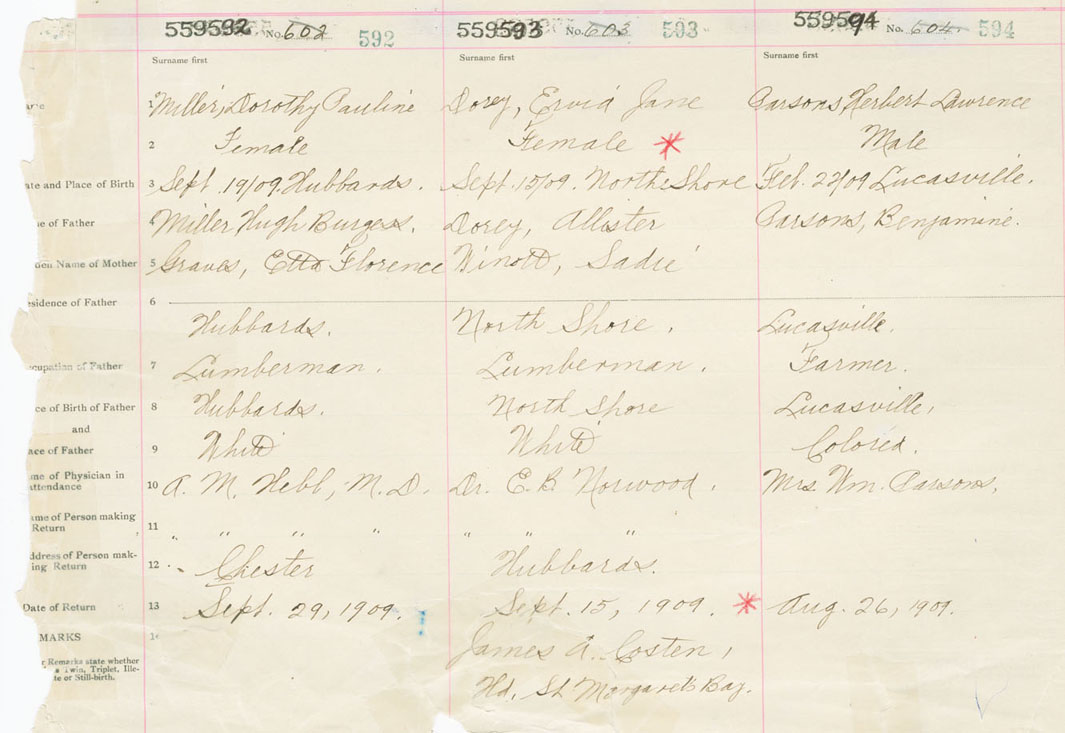 559592 No. 602 592 559593 No. 603 593 559594 No. 604. 594
Surname first Surname first Surname first
1 Miller, Dorothy Pauline Dorey, Ervid Jane Parsons, Herbert Lawrence
2 Female Female * Male
ate and Place of Birth 3 Sept. 19/09. Hubbards. Sept. 15/09. North Shore Feb. 22/09 Lucasville.
e of Father 4 Miller Hugh Burgess. Dorey, Allister Parsons, Benjamine.
den Name of Mother 5 Graves, Etta Florence Winott, Sadie
esidence of Father 6
Hubbards. North Shore. Lucasville.
cupation of Father 7 Lumberman. Lumberman. Farmer.
ce of Birth of Father 8 Hubbards. North Shore Lucasville,
and
ace of Father 9 White White Colored.
me of Physician in
attendance 10 A. M. Hebb, M. D. Dr. E. B. Norwood. Mrs. Wm. Parsons,
ame of Person making
Return 11 " " " " " " "
ddress of Person mak-
ing Return 12 Chester Hubbards.
Date of Return 13 Sept. 29, 1909. Sept. 15, 1909. * Aug. 26, 1909.
MARKS 14 James A. Costen,
r Remarks state whether
a Twin, Triplet, Ille-
te or Still-birth.
Hd. St Margaret's Bay.